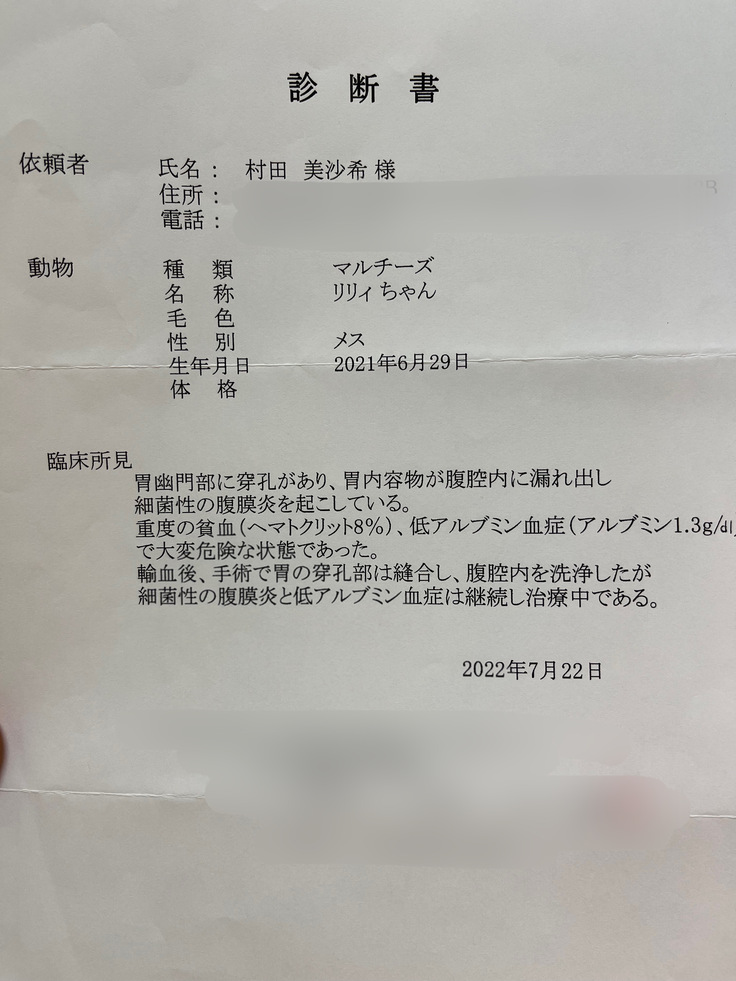 診 断 書
依頼者 氏名： 村田 美沙希 様
住所：
電話：
動物 種 類 マルチーズ
名 称 リリィちゃん
毛 色
性 別 メス
生年月日 2021年6月29日
体 格
臨床所見
胃幽門部に穿孔があり、胃内容物が腹腔内に漏れ出し
細菌性の腹膜炎を起こしている。
重度の貧血（ヘマトクリット8％）、低アルブミン血症（アルブミン1.3g/dl
で大変危険な状態であった。
輸血後、手術で胃の穿孔部は縫合し、腹腔内を洗浄したが
細菌性の腹膜炎と低アルブミン血症は継続し治療中である。
2022年7月22日